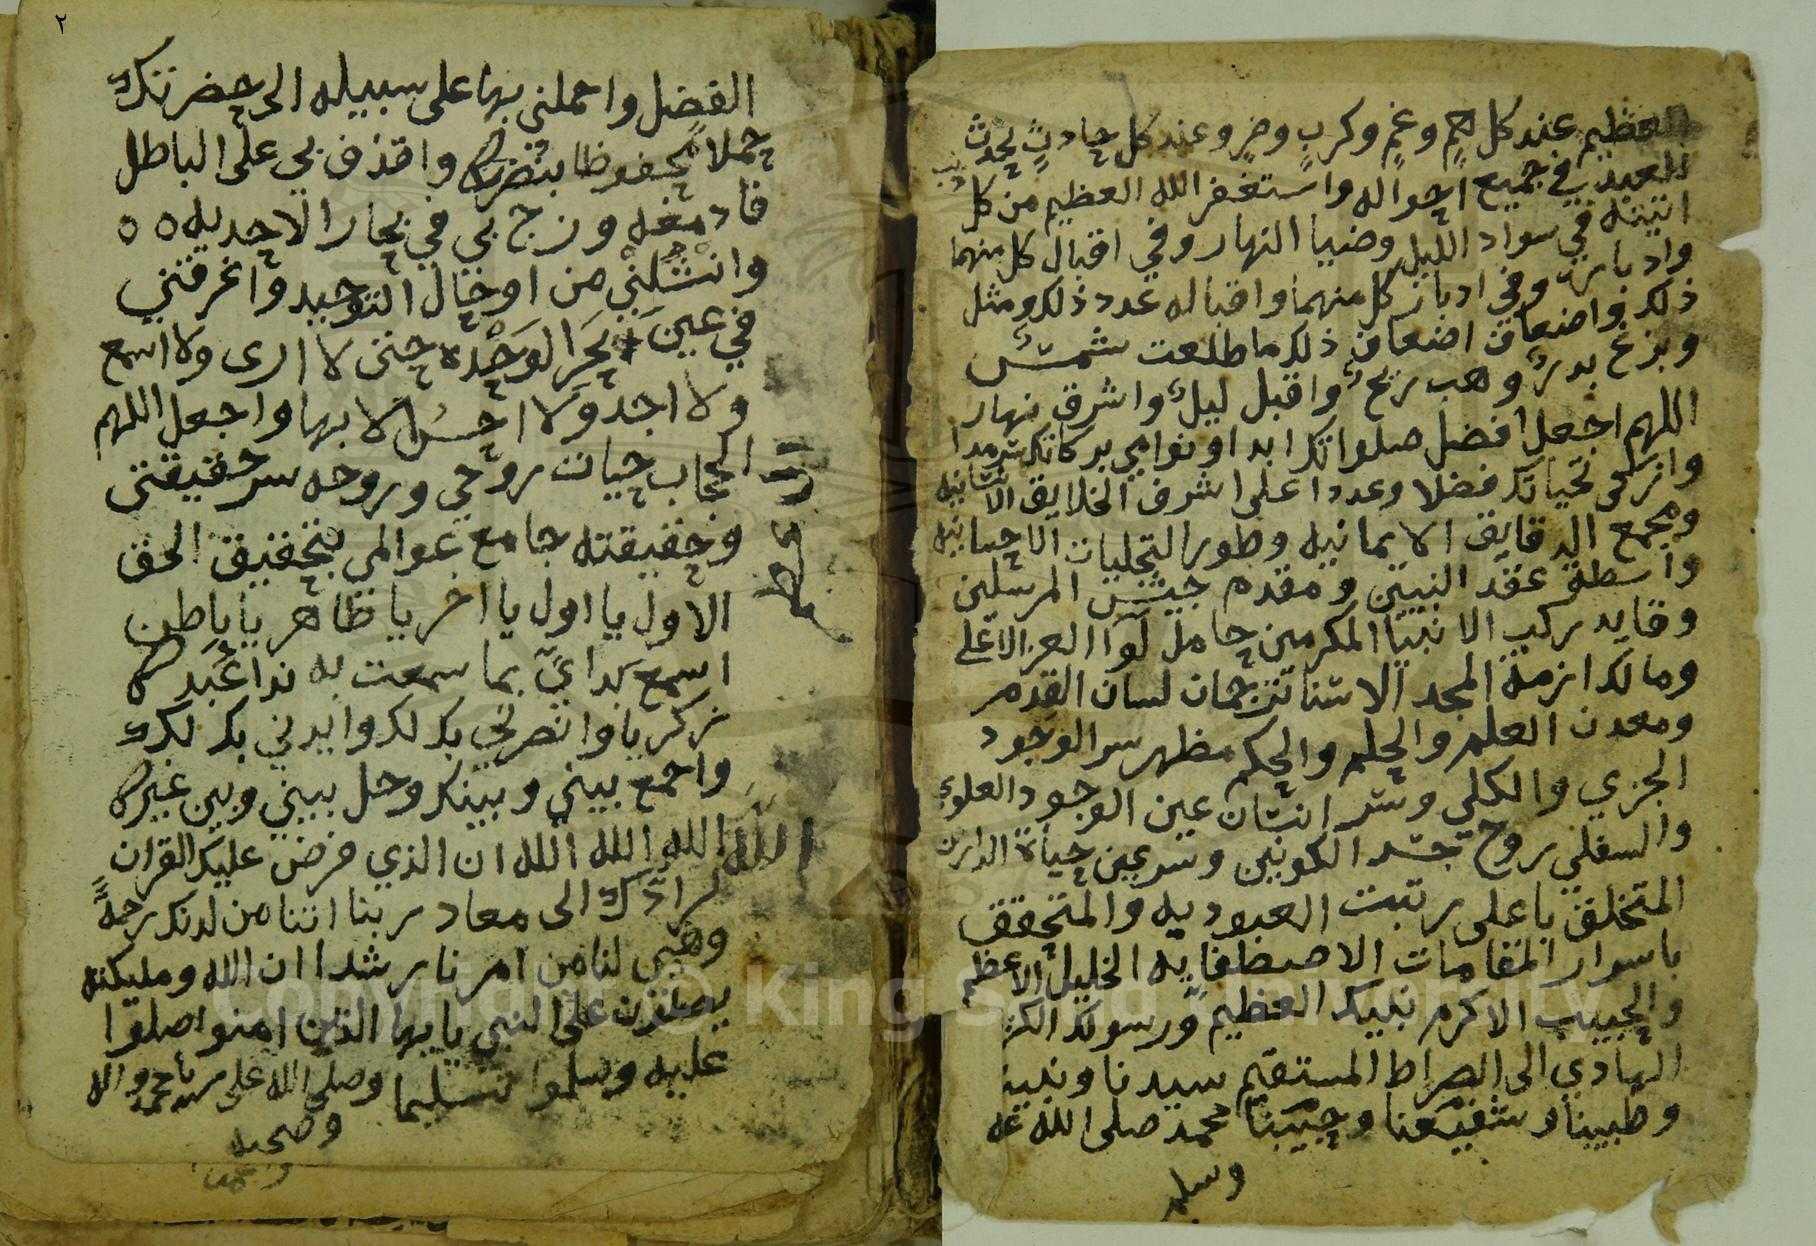 العظيم عند كل هم وغم وكرب وضر وعند كل حادث يحدث
للعبد في جميع احواله واستغفر الله العظيم من كل ذنب
اتيته في سواد الليل وضيا النهار وفي اقبال كل منهما
وادباره وفي ادبار كل منهما واقباله عدد ذلك ومثل
ذلك واضعاف اضعاف ذلك ما طلعت شمس
وبزغ بدر وهب ريح واقبل ليل واشرق نهار
اللهم اجعل افضل صلواتك ابدا ونوامي بركاتك سرمدا
وازكى تحياتك فضلا وعددا على اشرف الخلايق الانسانيه
ومجمع الدقايق الايمانيه وطور التجليات الاحسانيه
واسطة عقد النبيين ومقدم جيش المرسلين
وقايد ركب الانبيا المكرمين حامل لوآ العز الاعلى
ومالك ازمة المجد الاسنا ترجمان لسان القدم
ومعدن العلم والحلم والحكم مظهر سر الوجود
الجزي والكلي وسر انسان عين الوجود العلوي
والسفلي روح جسد الكونين وسر عين حياة الدارين
المتخلق باعلى رتبت العبوديه والمتحقق
باسرار المقامات الاصطفايه الخليل الاعظم
والحبيب الاكرم نبيك العظيم ورسولك
الهادي الى الصراط المستقيم سيدنا ونبينا
وطبيبنا وشفيعنا وحبيبنا محمد صلى الله عليه
وسلم
٢
الفضل واحملني بها على سبيله الى حضرتك
حملا محفوظا بنصرتك واقذف بي على الباطل
فادمغه وزج بي في بحار الاحديه ٥ ٥
وانشلني من اوحال التوحيد واغرقني
في عين بحر الوحدة حتى لا ارى ولا اسمع
ولا اجد ولا احس الا بها واجعل اللهم
الحجاب حيات روحي وروحه سر حقيقتي
وحقيقته جامع عوالمي بتحقيق الحق
الاول يا اول يا اخر يا ظاهر يا باطن
اسمع نداي بما سمعت به ندا عبدك
زكريا وانصرني بك لك وايدني بك لك
واجمع بيني وبينك وحل بيني وبين غيرك
الله الله الله الله ان الذي فرض عليك القران
لرادك الى معاد ربنا اتنا من لدنك رحمة
وهيى لنا من امرنا رشدا ان الله ومليكته
يصلون على النبي يايها الذين امنوا صلوا
عليه وسلموا تسليما وصلى الله على سيدنا محمد واله
وصحبه